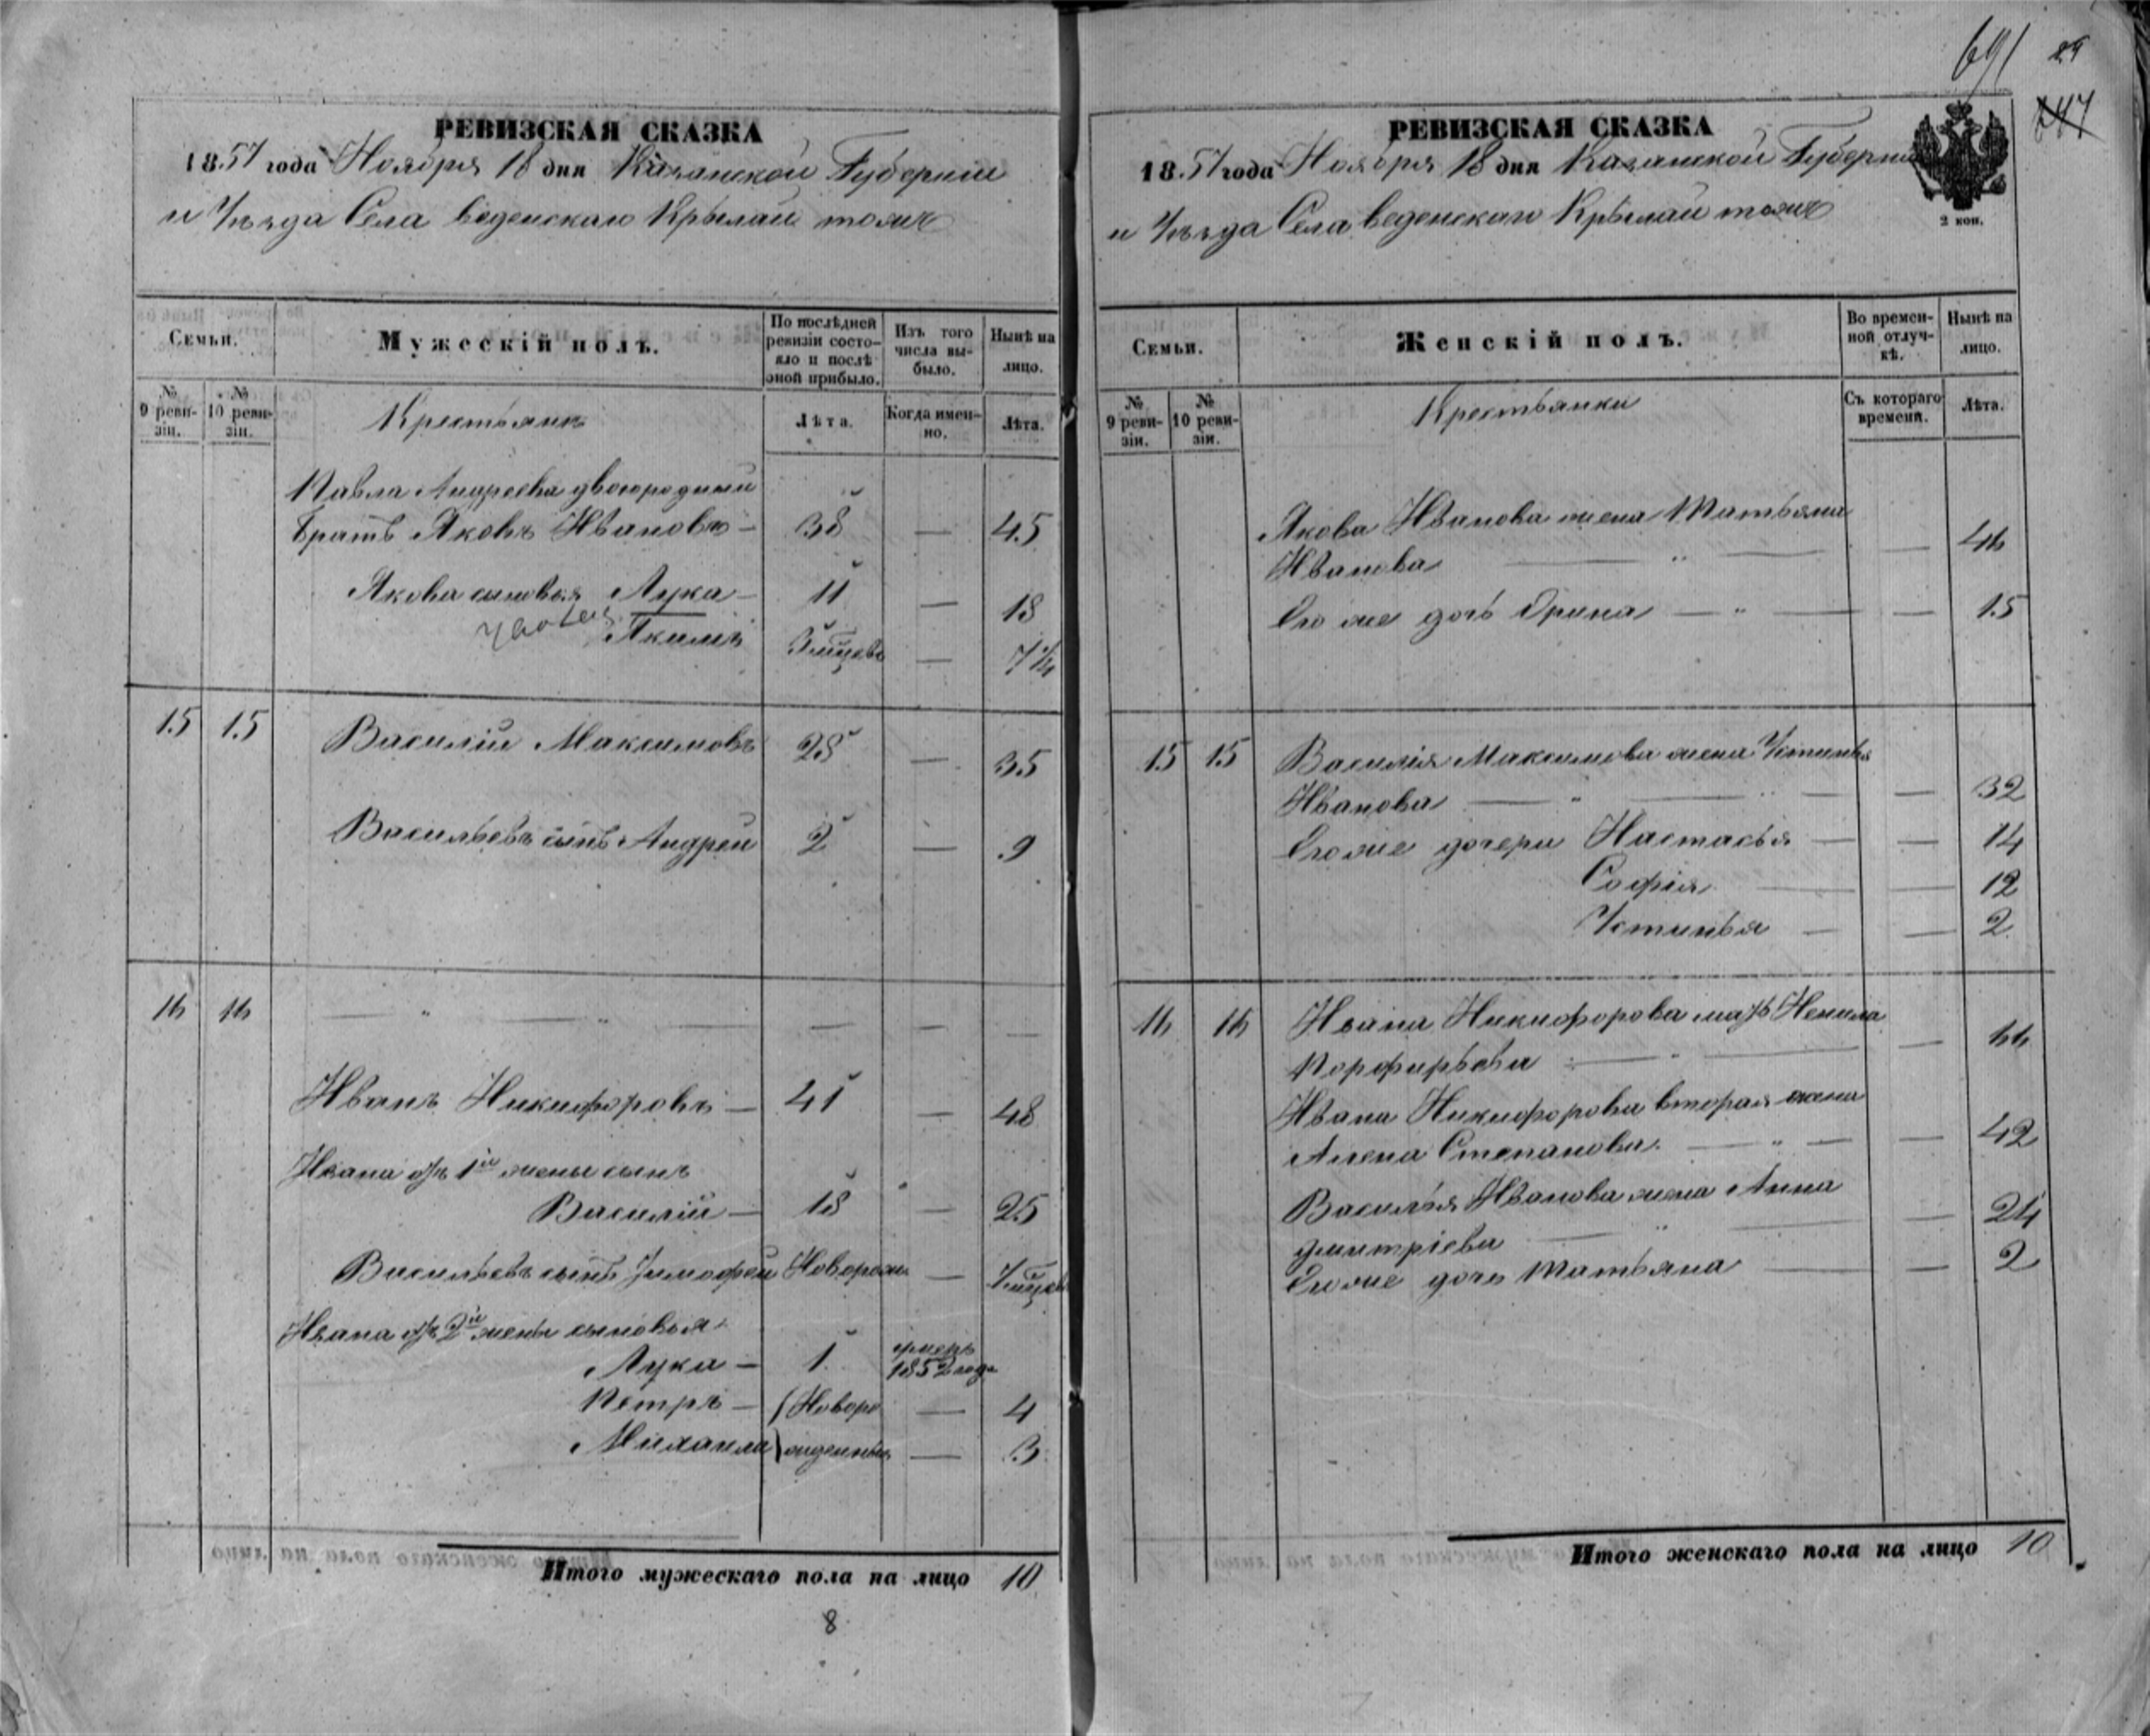 691 29
247
РЕВИЗСКАЯ СКАЗКА
1857 года Ноября 18 дня Казанской Губернии
и Уѣзда Села Веденскаго Крылай тожъ
Семьи.
Мужескій полъ.
По послѣдней ревизіи состояло и послѣ оной прибыло.
Изъ того числа выбыло.
Нынѣ на лицо.
№ 9 ревизіи.
№ 10 ревизіи.
Крестьянъ
Лѣта.
Когда именно.
Лѣта.
Павла Андреева двоюродный
братъ Яковъ Ивановъ — 38 — 45
Якова сыновья Лука — 11 — 18
Якимъ 3 мѣсцевъ — 7 1/4
15 15 Василій Максимовъ 28 — 35
Васильевъ сынъ Андрей 2 — 9
16 16 — " — " — — — —
Иванъ Никифоровъ — 41 — 48
Ивана отъ 1й жены сынъ
Василій — 18 — 25
Васильевъ сынъ Тимофей Новорож — 7 мѣсцев
Ивана отъ 2й жены сыновья
Лука — 1 умеръ 1852 года
Петръ — (Новоро — 4
Михаила) жденные — 3
Итого мужескаго пола на лицо 10
8
РЕВИЗСКАЯ СКАЗКА
1857 года Ноября 18 дня Казанской Губерніи
и Уѣзда Села Веденскаго Крылай тожъ
2 коп.
Семьи.
Женскій полъ.
Во временной отлучкѣ.
Нынѣ на лицо.
№ 9 ревизіи.
№ 10 ревизіи.
Крестьянки
Съ котораго времени.
Лѣта.
Якова Иванова жена Матьяна
Иванова — " — — 46
Его же дочь Орина — " — — 15
15 15 Василія Максимова жена Устинья
Иванова — " — " — — 32
Его же дочери Настасья — — 14
Софія — — 12
Устинья — — 2
16 16 Ивана Никифорова мать Ненила
Порфирьева — " — — 66
Ивана Никифорова вторая жена
Алена Степанова — " — — 42
Василья Иванова жена Анна
Дмитріева — " — — 24
Его же дочь Матьяна — — 2
Итого женскаго пола на лицо 10